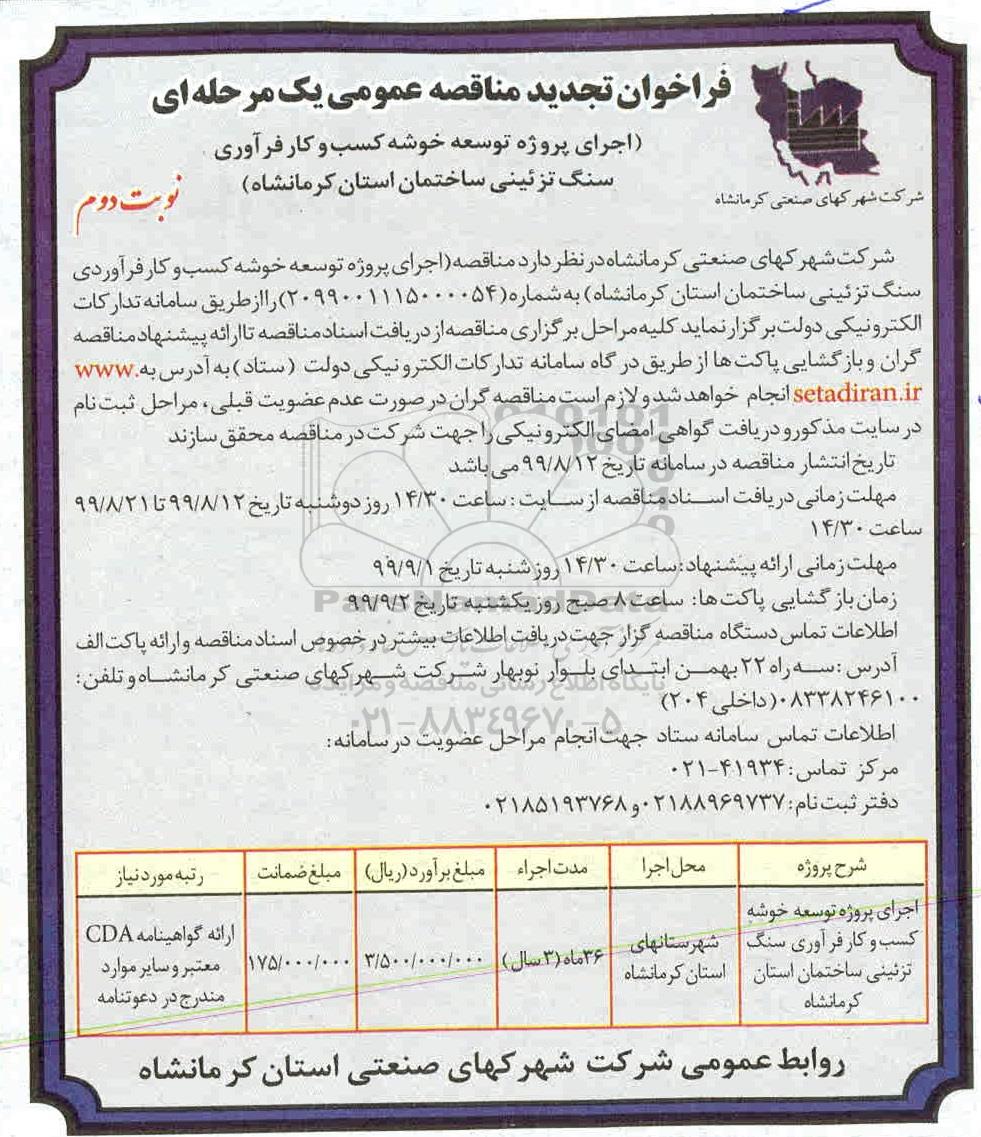 فراخوان تجدید مناقصه عمومی یک مرحله ای
(اجرای پروژه توسعه خوشه کسب و کار فرآوری
سنگ تزئینی ساختمان استان کرمانشاه)
نوبت دوم
شرکت شهرکهای صنعتی کرمانشاه
شرکت شهرکهای صنعتی کرمانشاه در نظر دارد مناقصه (اجرای پروژه توسعه خوشه کسب و کار فرآوردی
سنگ تزئینی ساختمان استان کرمانشاه) به شماره (۲۰۹۹۰۰۱۱۱۵۰۰۰۰۵۴) را از طریق سامانه تدارکات
الکترونیکی دولت برگزار نماید کلیه مراحل برگزاری مناقصه از دریافت اسناد مناقصه تا ارائه پیشنهاد مناقصه
گران و بازگشایی پاکت ها از طریق در گاه سامانه تدارکات الکترونیکی دولت (ستاد) به آدرس به www.
setadiran.ir انجام خواهد شد و لازم است مناقصه گران در صورت عدم عضویت قبلی، مراحل ثبت نام
در سایت مذکور و دریافت گواهی امضای الکترونیکی را جهت شرکت در مناقصه محقق سازند
تاریخ انتشار مناقصه در سامانه تاریخ ۹۹/۸/۱۲ می باشد
مهلت زمانی دریافت اسناد مناقصه از سایت : ساعت ۱۴/۳۰ روز دوشنبه تاریخ ۹۹/۸/۱۲ تا ۹۹/۸/۲۱
ساعت ۱۴/۳۰
مهلت زمانی ارائه پیشنهاد: ساعت ۱۴/۳۰ روز شنبه تاریخ ۹۹/۹/۱
زمان باز گشایی پاکت ها: ساعت ۸ صبح روز یکشنبه تاریخ ۹۹/۹/۲
ParsNamadData
اطلاعات تماس دستگاه مناقصه گزار جهت دریافت اطلاعات بیشتر در خصوص اسناد مناقصه و ارائه پاکت الف
آدرس : سه راه ۲۲ بهمن ابتدای بلوار نوبهار شرکت شهرکهای صنعتی کرمانشاه و تلفن:
پایگاه اطلاع رسانی مناقصه و مزایده
۰۸۳۳۸۲۴۶۱۰۰ (داخلی ۲۰۴)
۰۲۱-۸۸۳۴۹۶۷۰-۵
اطلاعات تماس سامانه ستاد جهت انجام مراحل عضویت در سامانه:
مرکز تماس: ۴۱۹۳۴-۰۲۱
دفتر ثبت نام: ۰۲۱۸۸۹۶۹۷۳۷ و ۰۲۱۸۵۱۹۳۷۶۸
شرح پروژه محل اجرا مدت اجراء مبلغ برآورد (ریال) مبلغ ضمانت رتبه مورد نیاز
اجرای پروژه توسعه خوشه
کسب و کار فرآوری سنگ
تزئینی ساختمان استان
کرمانشاه
شهرستانهای
استان کرمانشاه
۳۶ماه (۳ سال)
۳/۵۰۰/۰۰۰/۰۰۰
۱۷۵/۰۰۰/۰۰۰
ارائه گواهینامه CDA
معتبر و سایر موارد
مندرج در دعوتنامه
روابط عمومی شرکت شهرکهای صنعتی استان کرمانشاه